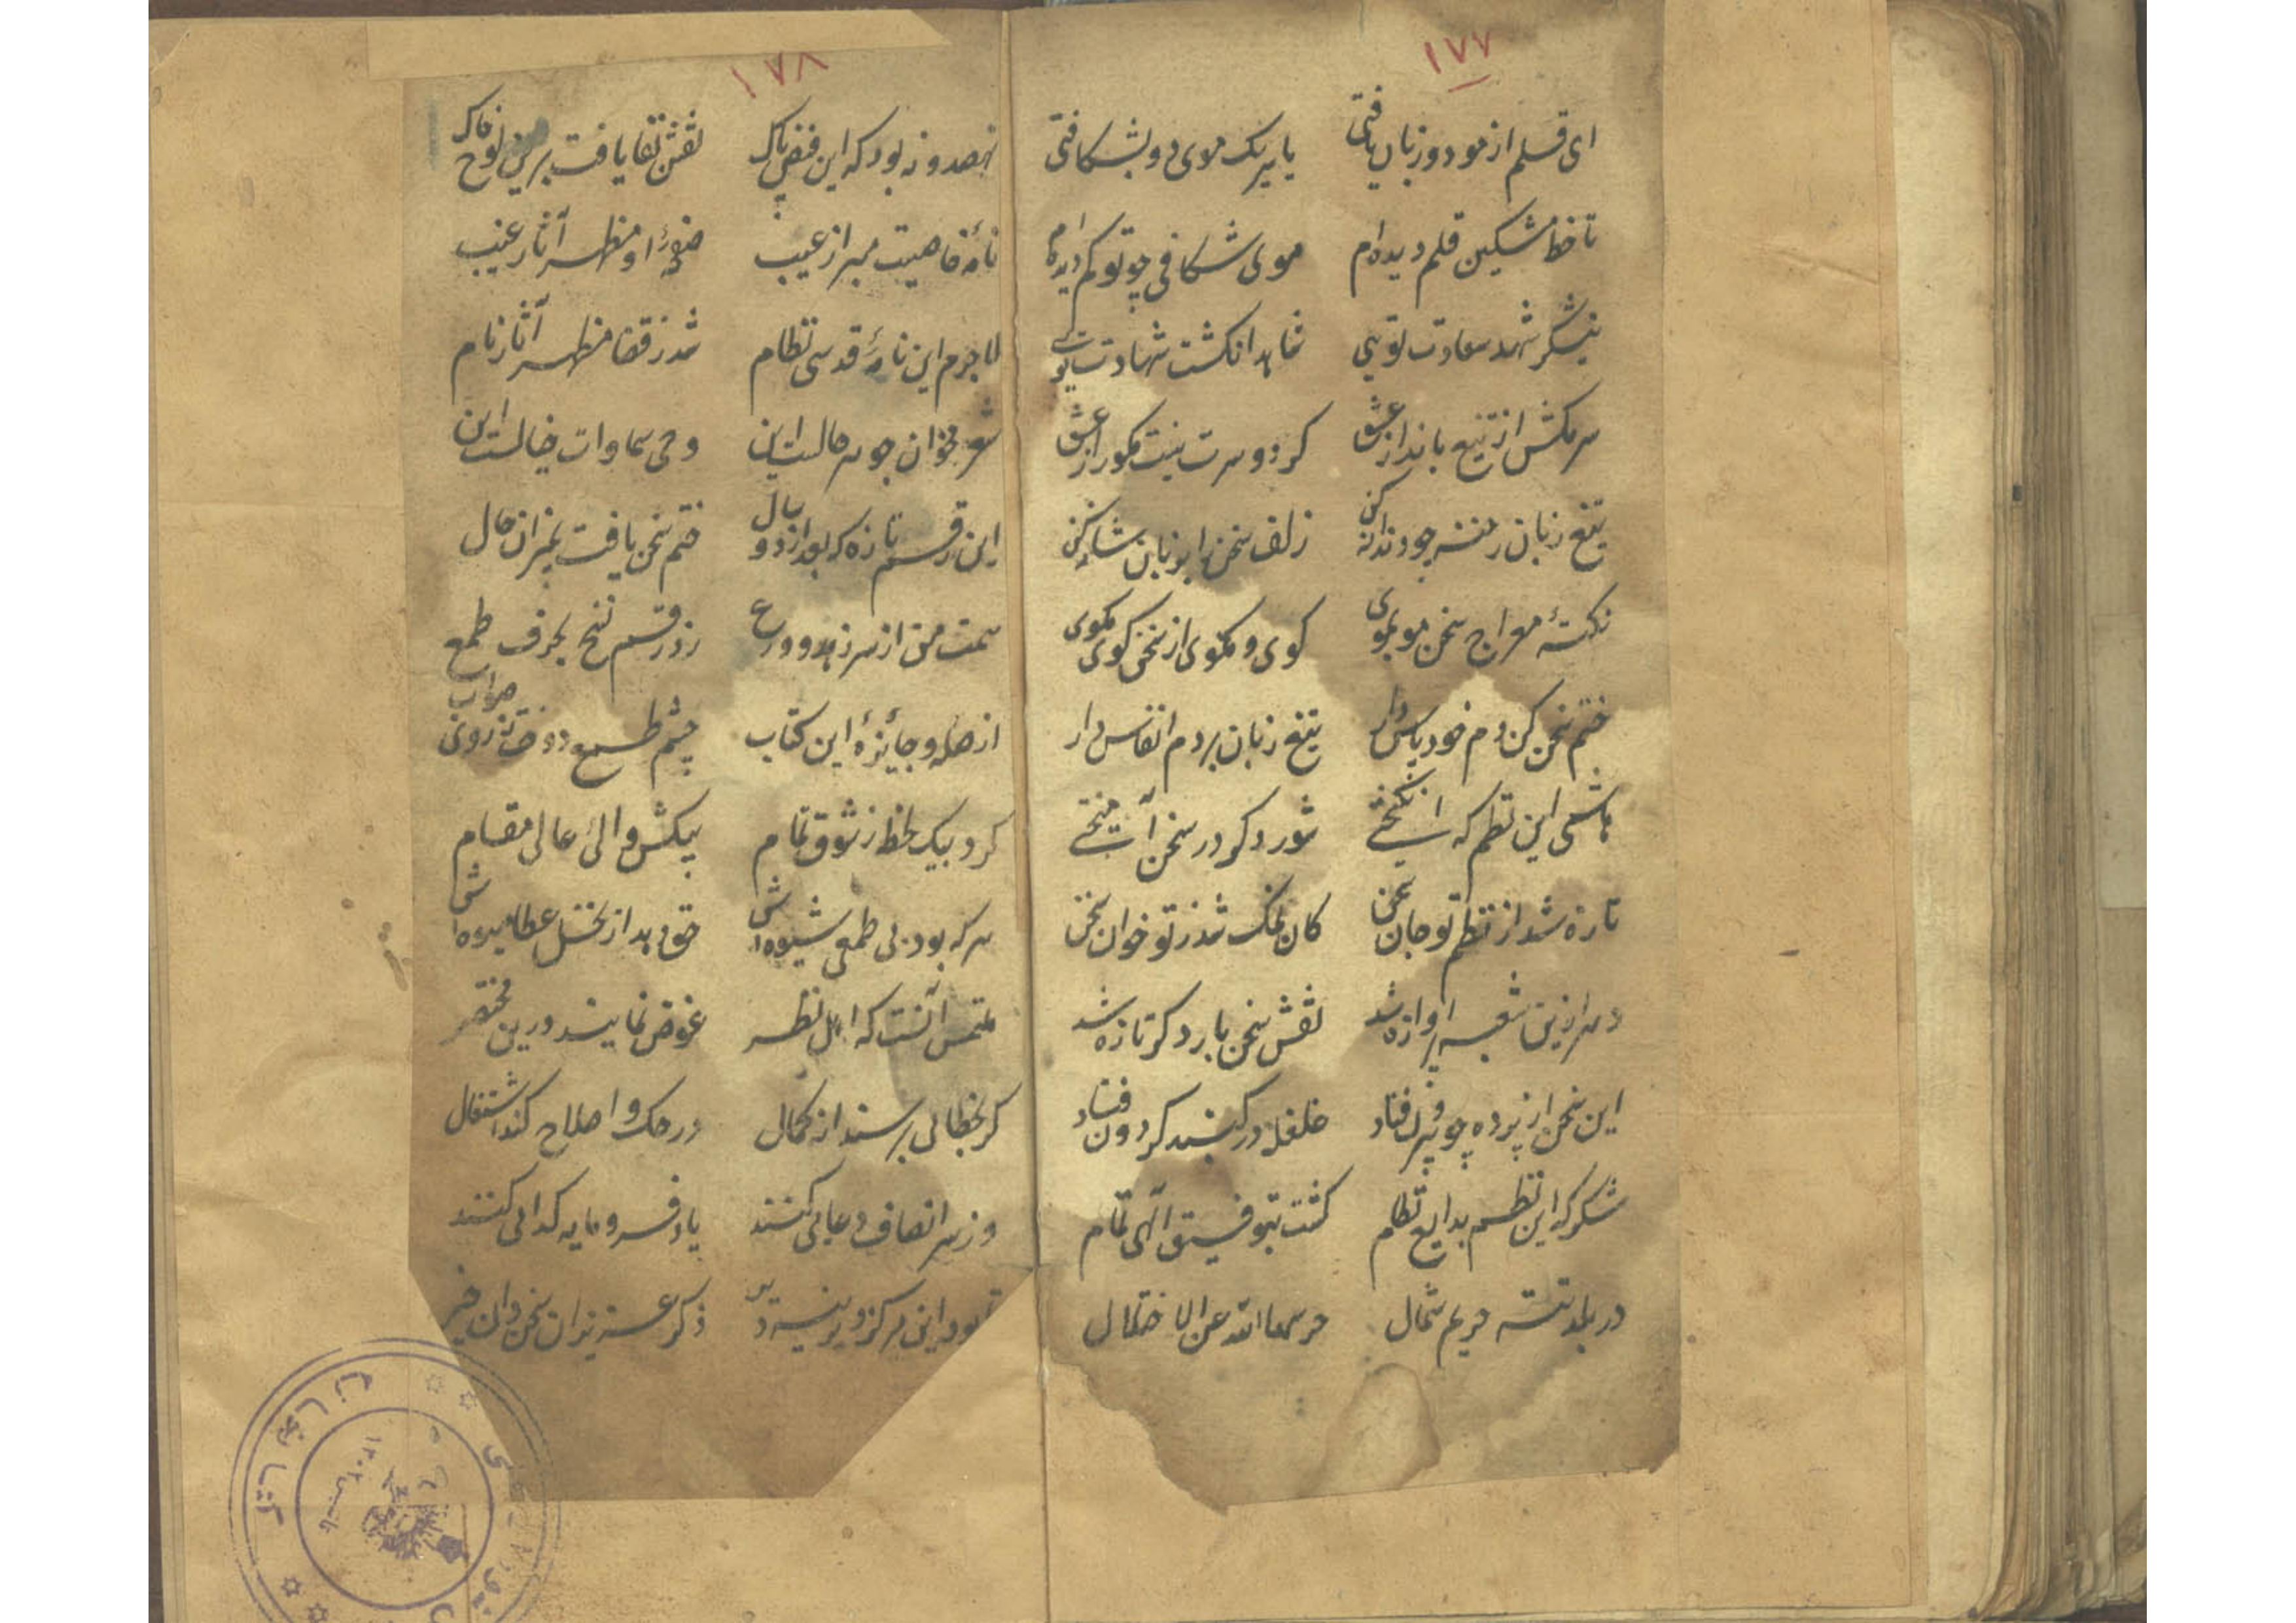 ۱۷۷
ای قلم از مو دو زبان یافتی یا سر یک موی دو بشکافتی
تا خط مشکین قلم دیده‌ام موی شکافی چو تو کم دیده‌ام
نیشکر شهد سعادت تویی شاهد انگشت شهادت تویی
سر مکش از تیغ بانداز عشق کر دو سرت نیست مکو راز عشق
تیغ زبان چو دندانه کن زلف سخن را بزبان شانه کن
نکتهٔ معراج سخن مو بموی کوی و مکوی از سخن کوی مکوی
ختم سخن کن دم خود پاس دار تیغ زبان بر دم انفاس دار
هاشمی این نظم که انگیختی شور دکر در سخن آمیختی
تازه شد از نظم تو جان سخن کان نمک شد ز تو خوان سخن
شد نقش سخن بار دکر تازه شد
این سخن از پرده چو بیرون فتاد غلغله در کنبد کردون فتاد
شکر که این نظم بدایع نظام کشت بتوفیق الهی تمام
در بلد تته حریم شمال حرسها الله عن الاختلال
۱۷۸
نهصد و نه بود که این فیض پاک نقش بقا یافت برین لوح خاک
نامهٔ خاصیت مبرا ز عیب او مظهر آثار غیب
لاجرم این نامهٔ قدسی نظام شد ز قضا مظهر آثار نام
شعر مخوان جو سر حالست این وحی سماوات خیالست این
این رقم تازه که بعد از دو سال ختم سخن یافت حال
همت من از سر زهد و ورع زد رقم نسخ بحرف طمع
از صله و جایزهٔ این کتاب چشم طمع دوخت ز روی صواب
کرد بیک لحظه ز شوق تمام پیکش والی عالی مقام
هر که بود بی طمعی شیوه‌اش حق دهد از نخل عطا میوه‌اش
ملتمس آنست که اهل نظر غوض نمایند درین مختصر
کر بخطائی برسند از کمال در حک و اصلاح کند اشتغال
وز سر انصاف دعائی کنند یاد فرومایه کدائی کنند
بود این مرکز دیرینه ذکر عزیزان سخن خیر